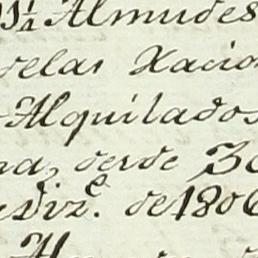 51/4 Almudes
velas Nacio
Alquilados
na, desde 30
Diz.e de 1806